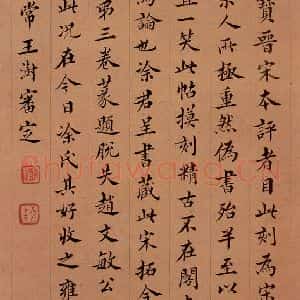 寶晉宋本評者目此刻為宋
人所極重然偽書殆半至以
一笑此帖摸刻精古不在閣
論也涂君呈書藏此宋拓今
第三卷篆題脫失趙文敏公
此况在今日涂氏其好收之雍
常王澍審定